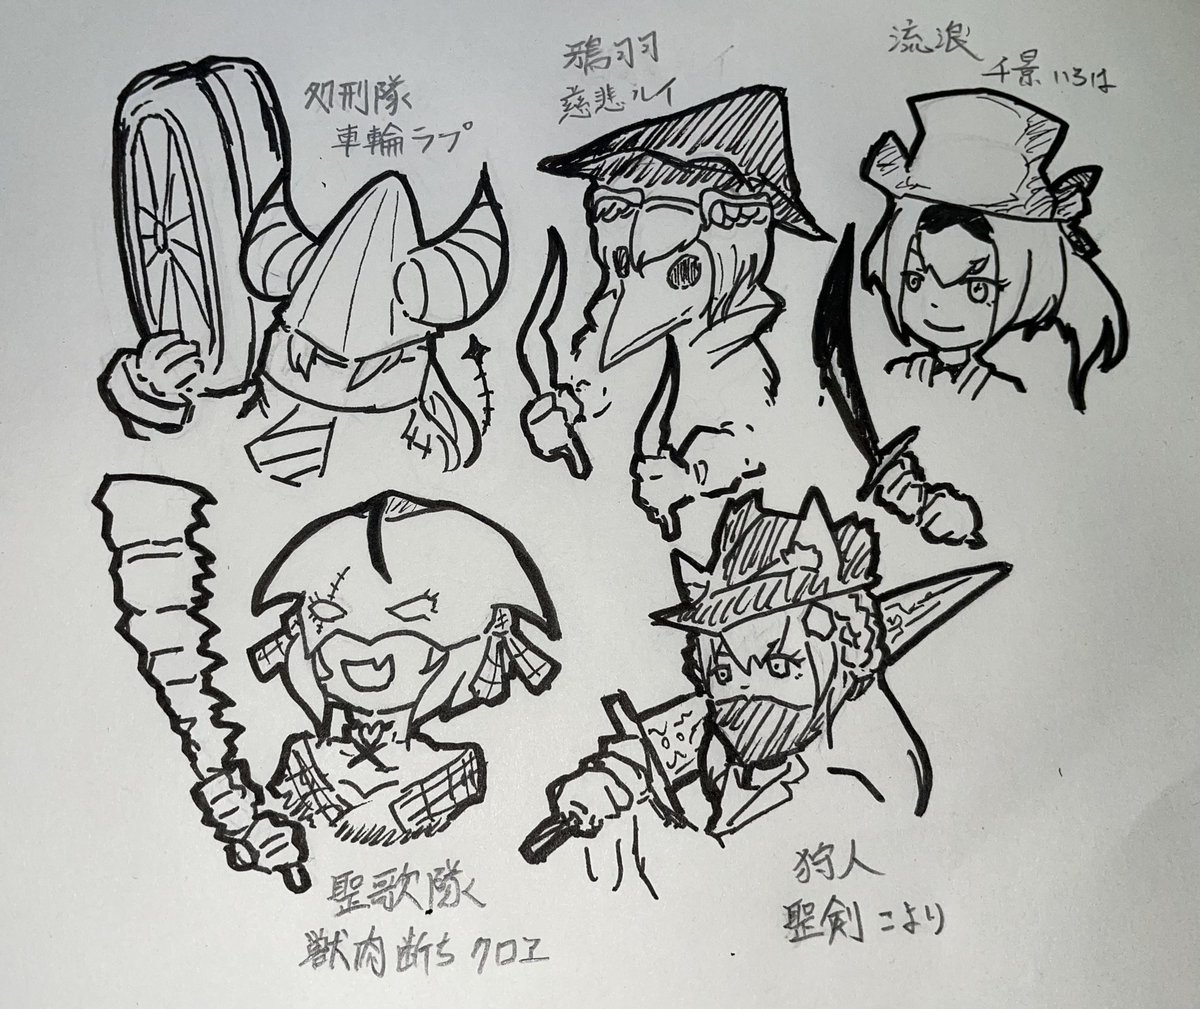 処刑隊
車輪ラプ
鴉羽
慈悲ルイ
流浪
千景いろは
聖歌隊
獣肉断ちクロヱ
狩人
聖剣こより